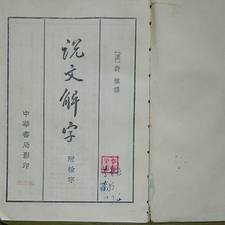 [漢]許慎撰
说文解字
附檢字
中華書局影印